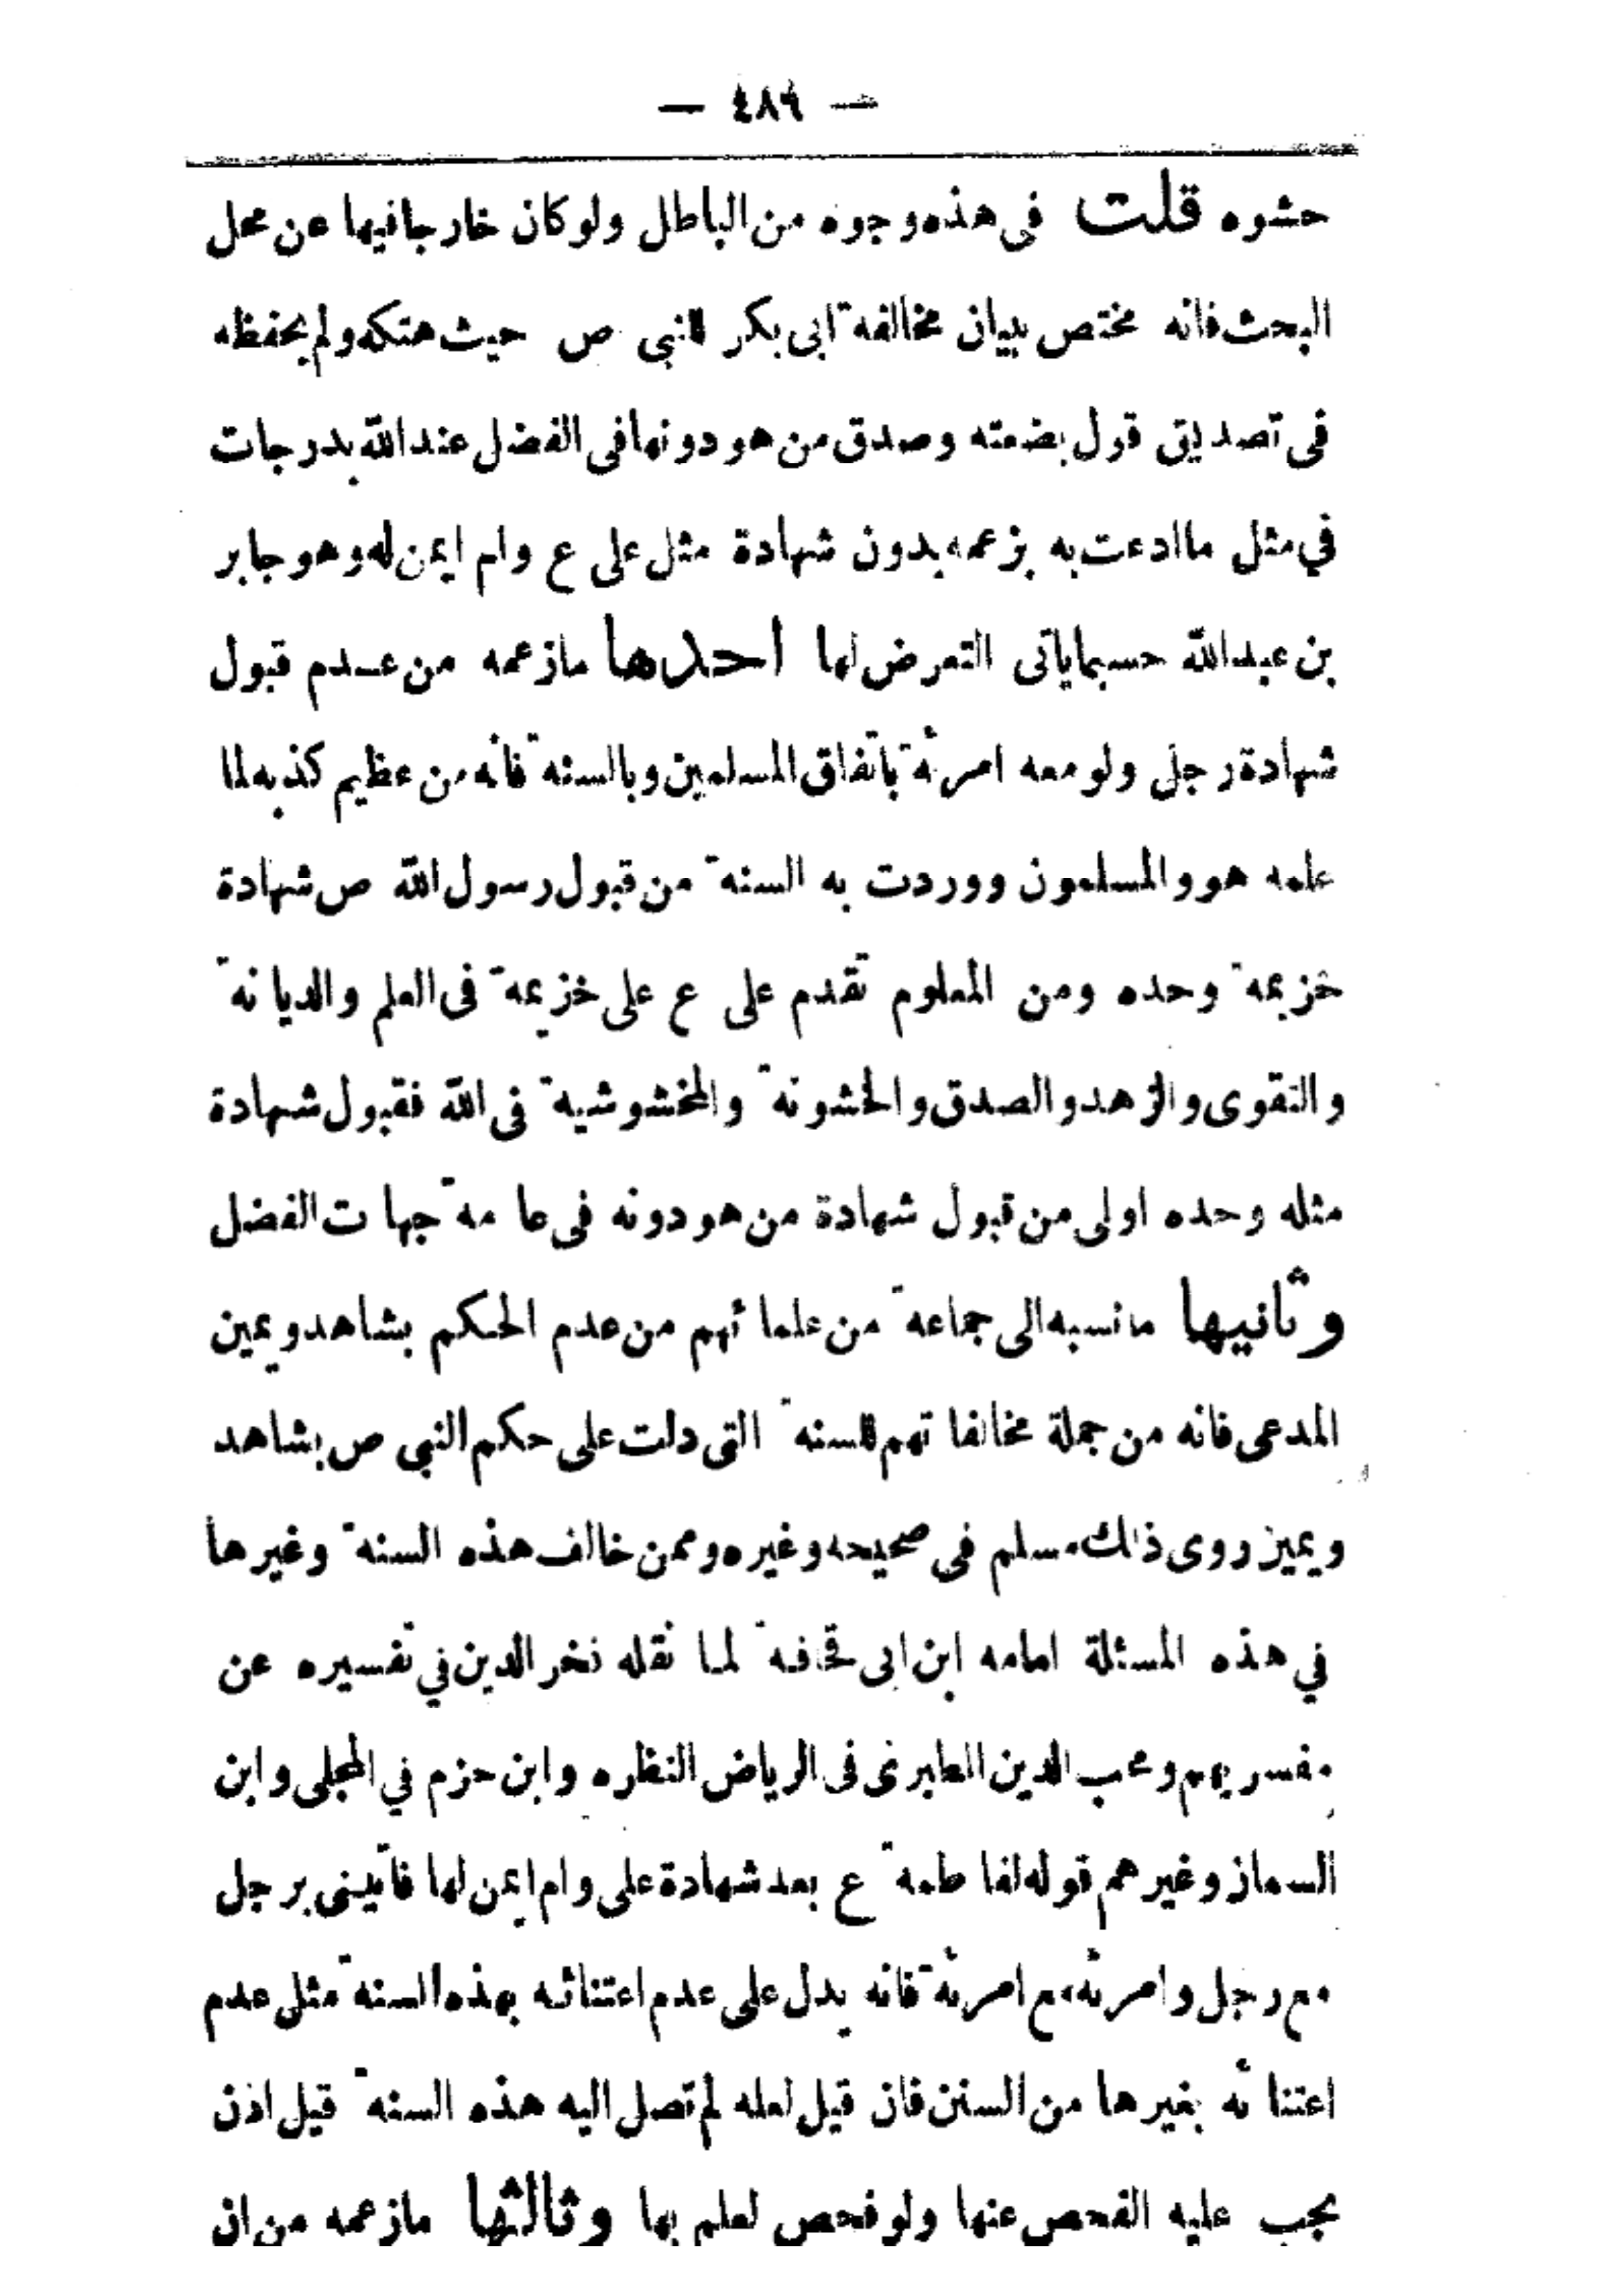 — ٤٨٩ —
حشوه قلت فى هذه وجوه من الباطل ولو كان خارجا فيها عن محل
البحث فانه مختص ببيان مخالفة ابى بكر للنبى ص حيث هتكه ولم يحفظه
فى تصديق قول بضعته وصدق من هو دونها فى الفضل عند الله بدرجات
في مثل ما ادعت به بزعمه بدون شهادة مثل على ع وام ايمن له وهو جابر
بن عبد الله حسبما ياتى التعرض لها احدها ما زعمه من عدم قبول
شهادة رجل ولو معه امرئة باتفاق المسلمين وبالسنة فانه من عظيم كذبه لما
علمه هو والمسلمون ووردت به السنة من قبول رسول الله ص شهادة
خزيمة وحده ومن المعلوم تقدم على ع على خزيمة فى العلم والديانة
والتقوى والزهد والصدق والخشونة والمخشوشية فى الله فقبول شهادة
مثله وحده اولى من قبول شهادة من هو دونه فى عامة جهات الفضل
وثانيها ما نسبه الى جماعة من علمائهم من عدم الحكم بشاهد ويمين
المدعى فانه من جملة مخالفاتهم للسنة التى دلت على حكم النبى ص بشاهد
ويمين روى ذلك مسلم فى صحيحه وغيره وممن خالف هذه السنة وغيرها
في هذه المسئلة امامه ابن ابى قحافة لما نقله فخر الدين في تفسيره عن
مفسريهم ومحب الدين الطبرى فى الرياض النظره وابن حزم في المحلى وابن
السمان وغيرهم قوله لفاطمة ع بعد شهادة على وام ايمن لها فاتينى برجل
مع رجل وامرئة مع امرئة فانه يدل على عدم اعتنائه بهذه السنة مثل عدم
اعتنائه بغيرها من السنن فان قيل لعله لم تصل اليه هذه السنة قيل اذن
يجب عليه الفحص عنها ولو فحص لعلم بها وثالثها ما زعمه من ان